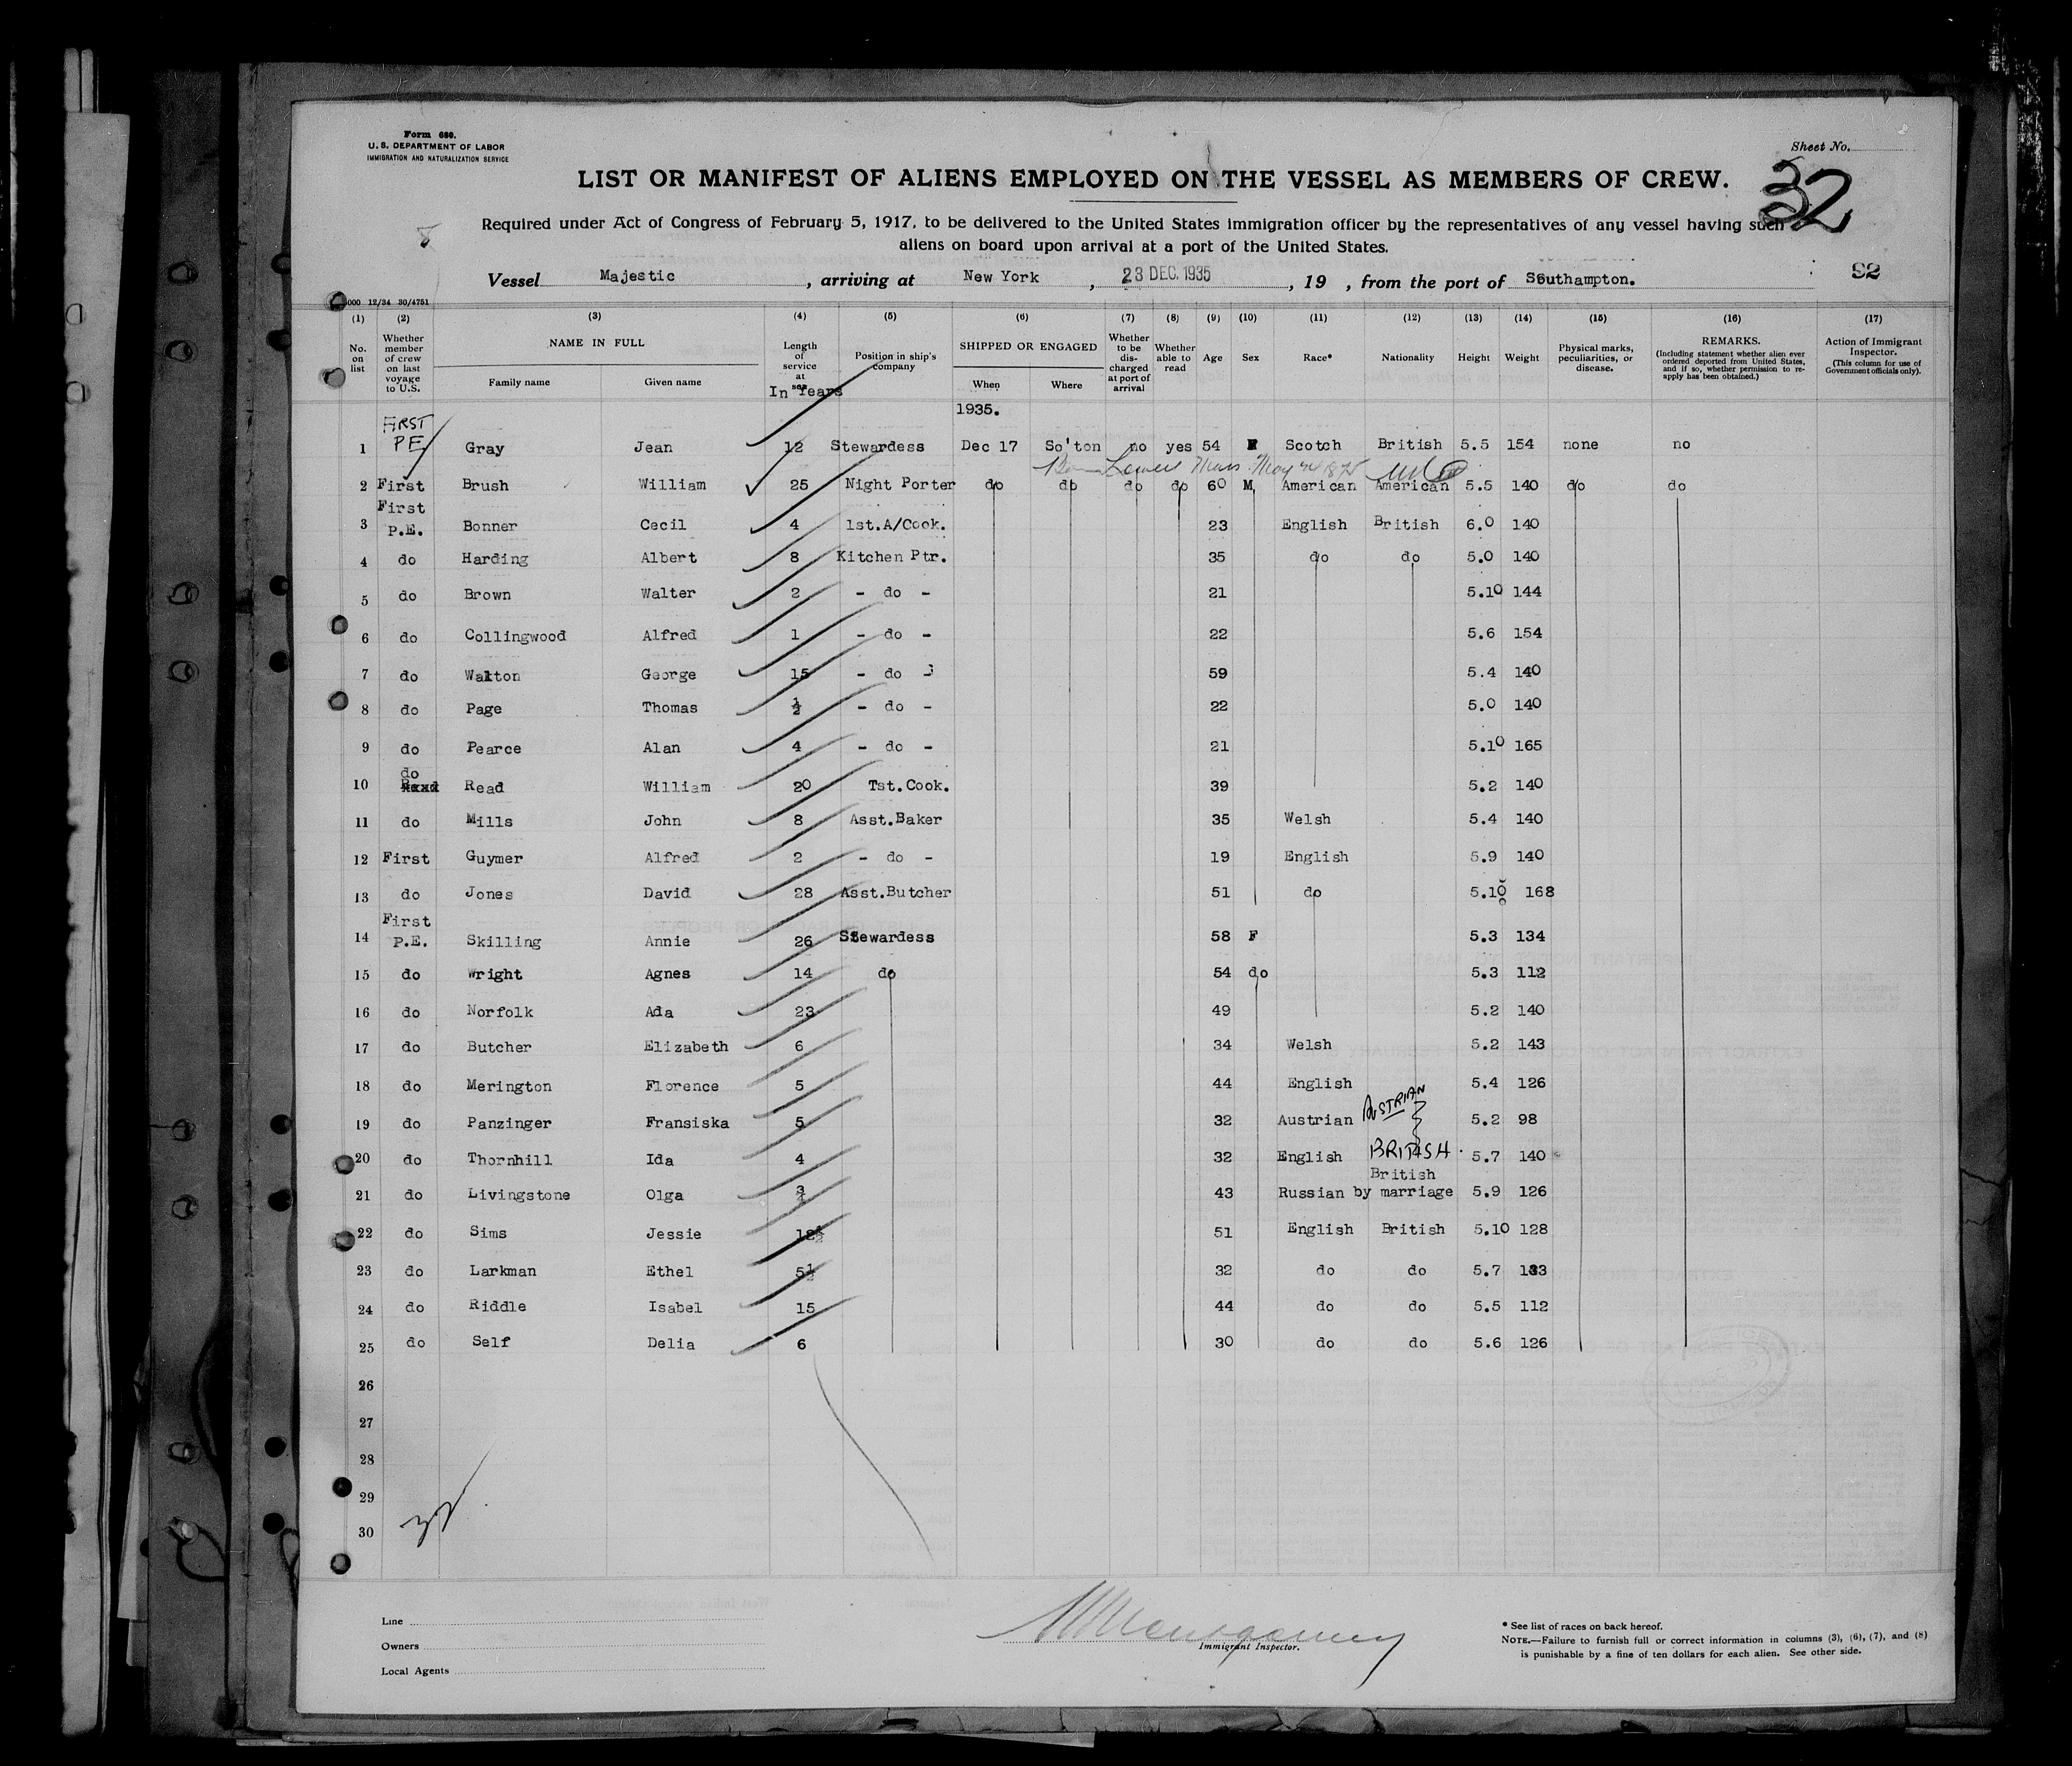 Form 680.
U. S. DEPARTMENT OF LABOR
IMMIGRATION AND NATURALIZATION SERVICE
Sheet No.
32
LIST OR MANIFEST OF ALIENS EMPLOYED ON THE VESSEL AS MEMBERS OF CREW.
Required under Act of Congress of February 5, 1917, to be delivered to the United States immigration officer by the representatives of any vessel having such
aliens on board upon arrival at a port of the United States.
Vessel Majestic , arriving at New York , 23 DEC. 1935 , 19 , from the port of Southampton.
92
000 12/34 30/4751
(1) (2) (3) (4) (5) (6) (7) (8) (9) (10) (11) (12) (13) (14) (15) (16) (17)
No. on list
Whether member of crew on last voyage to U.S.
NAME IN FULL
Family name Given name
Length of service at sea
In Years
Position in ship's company
SHIPPED OR ENGAGED
When Where
Whether to be discharged at port of arrival
Whether able to read
Age
Sex
Race*
Nationality
Height
Weight
Physical marks, peculiarities, or disease.
REMARKS.
(Including statement whether alien ever ordered deported from United States, and if so, whether permission to reapply has been obtained.)
Action of Immigrant Inspector.
(This column for use of Government officials only).
1935.
1 FIRST PE Gray Jean 12 Stewardess Dec 17 So'ton no yes 54 Scotch British 5.5 154 none no
Born Lowell Mass. May
2 First Brush William 25 Night Porter do do do do 60 M American American 5.5 140 do do
3 First P.E. Bonner Cecil 4 1st.A/Cook. 23 English British 6.0 140
4 do Harding Albert 8 Kitchen Ptr. 35 do do 5.0 140
5 do Brown Walter 2 - do - 21 5.10 144
6 do Collingwood Alfred 1 - do - 22 5.6 154
7 do Walton George 15 - do - 59 5.4 140
8 do Page Thomas ½ - do - 22 5.0 140
9 do Pearce Alan 4 - do - 21 5.10 165
10 do Read William 20 Tst.Cook. 39 5.2 140
11 do Mills John 8 Asst.Baker 35 Welsh 5.4 140
12 First Guymer Alfred 2 - do - 19 English 5.9 140
13 do Jones David 28 Asst.Butcher 51 do 5.10 168
14 First P.E. Skilling Annie 26 Stewardess 58 F 5.3 134
15 do Wright Agnes 14 do 54 do 5.3 112
16 do Norfolk Ada 23 49 5.2 140
17 do Butcher Elizabeth 6 34 Welsh 5.2 143
18 do Merington Florence 5 44 English 5.4 126
19 do Panzinger Fransiska 5 32 Austrian AUSTRIAN 5.2 98
20 do Thornhill Ida 4 32 English BRITISH. 5.7 140
21 do Livingstone Olga ¾ 43 Russian British by marriage 5.9 126
22 do Sims Jessie 12½ 51 English British 5.10 128
23 do Larkman Ethel 5½ 32 do do 5.7 133
24 do Riddle Isabel 15 44 do do 5.5 112
25 do Self Delia 6 30 do do 5.6 126
26
27
28
29
30
Line
Owners
Local Agents
Immigrant Inspector.
* See list of races on back hereof.
NOTE.—Failure to furnish full or correct information in columns (3), (6), (7), and (8)
is punishable by a fine of ten dollars for each alien. See other side.